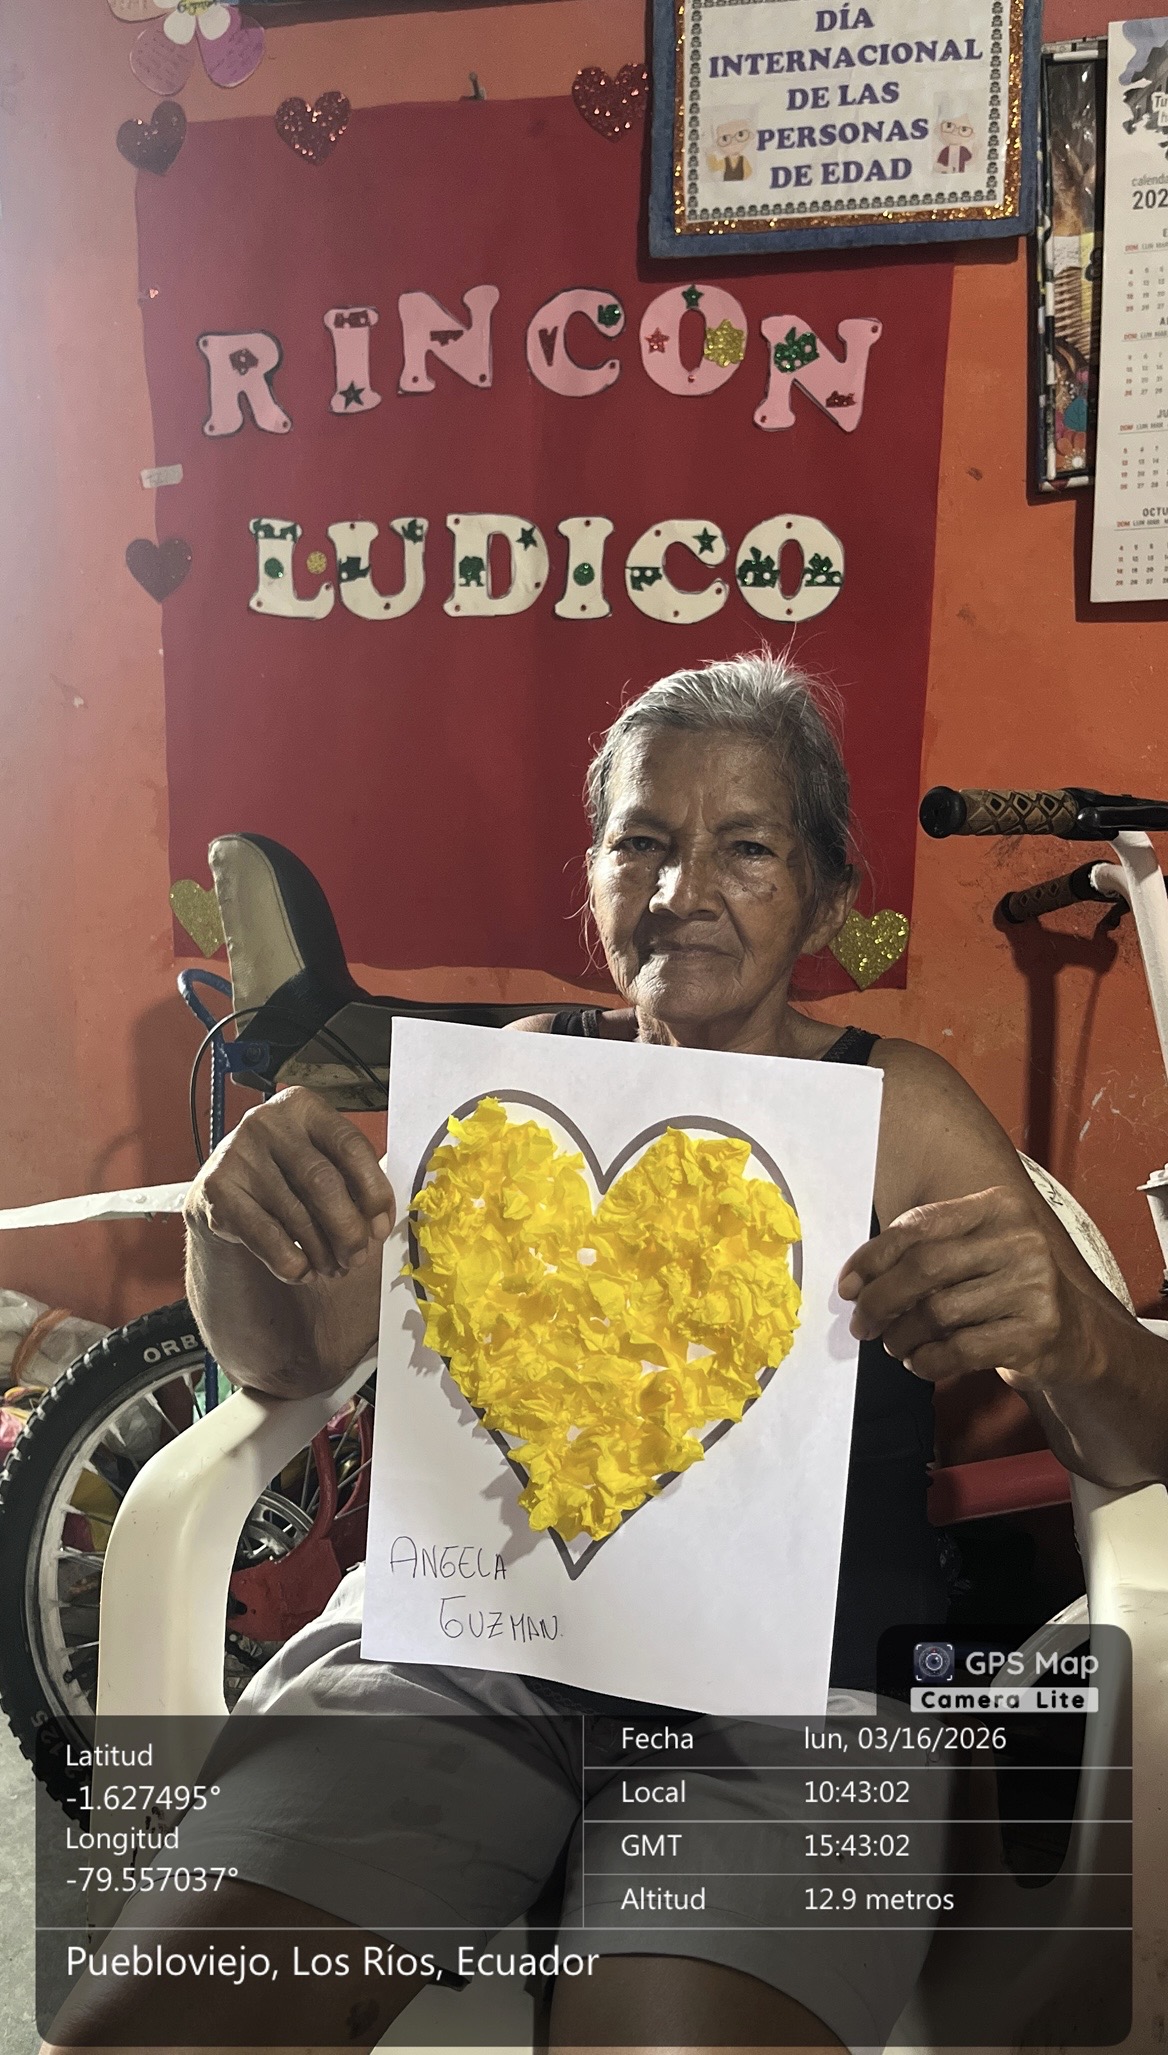 DÍA
INTERNACIONAL
DE LAS
PERSONAS
DE EDAD
calenda
202
RINCON
LUDICO
ORB
ANGELA
GUZMAN.
GPS Map
Camera Lite
Latitud
-1.627495°
Longitud
-79.557037°
Fecha lun, 03/16/2026
Local 10:43:02
GMT 15:43:02
Altitud 12.9 metros
Puebloviejo, Los Ríos, Ecuador